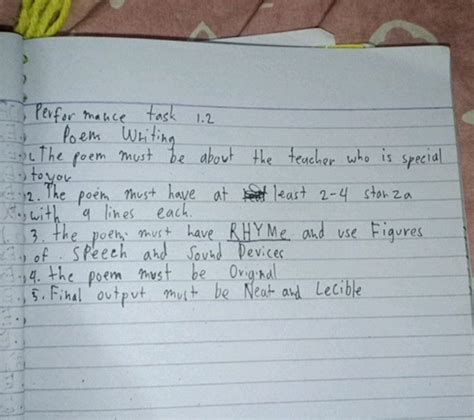 Performance task 1.2
Poem Writing
1. The poem must be about the teacher who is special
to you
2. The poem must have at least 2-4 stanza
with 4 lines each.
3. the poem must have RHYMe and use Figures
of Speech and Sound Devices
4. the poem must be Original
5. Final output must be Neat and Lecible